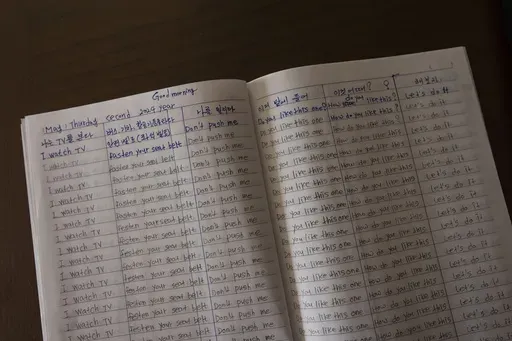 Good morning
May : Thursday cecond 2019 year
나는 TV를 본다
I watch TV fasten your seat belt Don't push me
I watch TV fasten your seat belt Don't push me
I watch TV fasten your seat belt Don't push me
I watch TV fasten your seat belt Don't push me
I watch TV fasten your seat belt Don't push me
I watch TV fasten your seat belt Don't push me
I watch TV fasten your seat belt Don't push me
I watch TV fasten your seat belt Don't push me
I watch TV fasten your seat belt Don't push me
I watch TV fasten your seat belt Don't push me
I watch TV fasten your seat belt Don't push me
I watch TV fasten your seat belt Don't push me
I watch TV fasten your seat belt Don't push me
I watch TV fasten your seat belt Don't push me
I watch TV festen your seat belt Don't push me
Do you like this one? How do you like this? Let's do it
Do you like this one How do you like this? Let's do it
Do you like this one How do you like this? Let's do it
Do you like this one How do you like this Let's do it
Do you like this one How do you like this Let's do it
Do you like this one How do you like this Let's do it
Do you like this one How do you like this Let's do it
Do you like this one How do you like this Let's do it
Do you like this one How do you like this Let's do it
Do you like this one How do you like this Let's do it
Do you like this one How do you like this Let's do it
Do you like this one How do you like this Let's do it
Do you like this one How do you like this Let's do it
Do you like this one How do you like this Let's do it
Do you like this one How do you like this Let's do it
Do you like this one How do you like this Let's do it